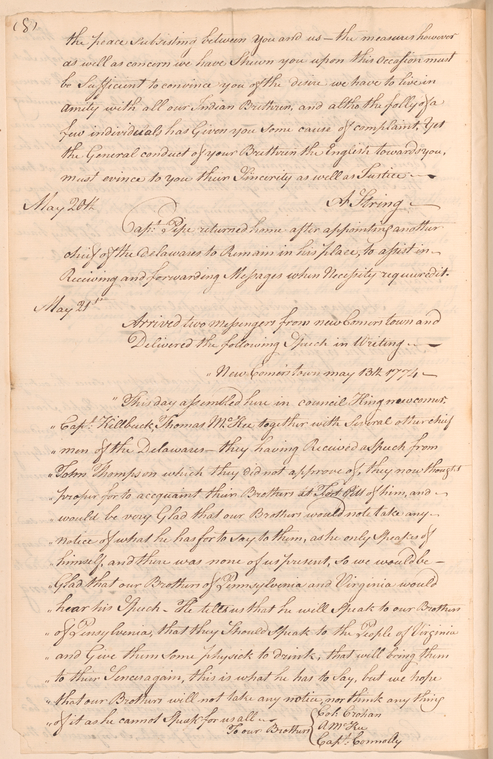 (8)
the peace Subsisting between You and us — the measures however
as well as concern we have Shewn you upon this Occasion must
be Sufficient to convince you of the desire we have to live in
amity with all our Indian Brethren, and altho the folly of a
few individuals has Given you Some cause of complaint, Yet
the General conduct of your Brethren the English towards you,
must evince to you their Sincerity as well as Justice —
A String
May 20th
Capt. Pipe returned home after appointing another
chief of the Delawares to Remain in his place, to assist in
Receiving and forwarding Messages when Necessity required it
May 21st
Arrived two messengers from new Comers town and
Delivered the following Speech in Writing —
" New Comers town may 13th 1774 —
" This day assembled here in council King newcomer
" Capt. Killbuck, Thomas McKee, together with Several other chief
" men of the Delawares — they having Received a Speech from
" John Thompson which they did not approve of, they now thought
" proper for to acquaint their Brothers at Fort Pitt of him, and
" would be very Glad that our Brothers would not take any
" notice of what he has for to Say to them, as he only Speakes of
" himself, and there was none of us present, So we would be —
" Glad that our Brothers of Pennsylvania and Virginia would
" hear his Speech — He tells us that he will Speak to our Brothers
" of Pensylvania, that they Should Speak to the People of Virginia
" and Give them Some physick to drink, that will bring them
" to their Sences again, this is what he has to Say, but we hope
" that our Brothers will not take any notice, nor think any thing
" of it as he cannot Speak for us all —
To our Brothers
Col. Croghan
A McKee
Capt. Connolly